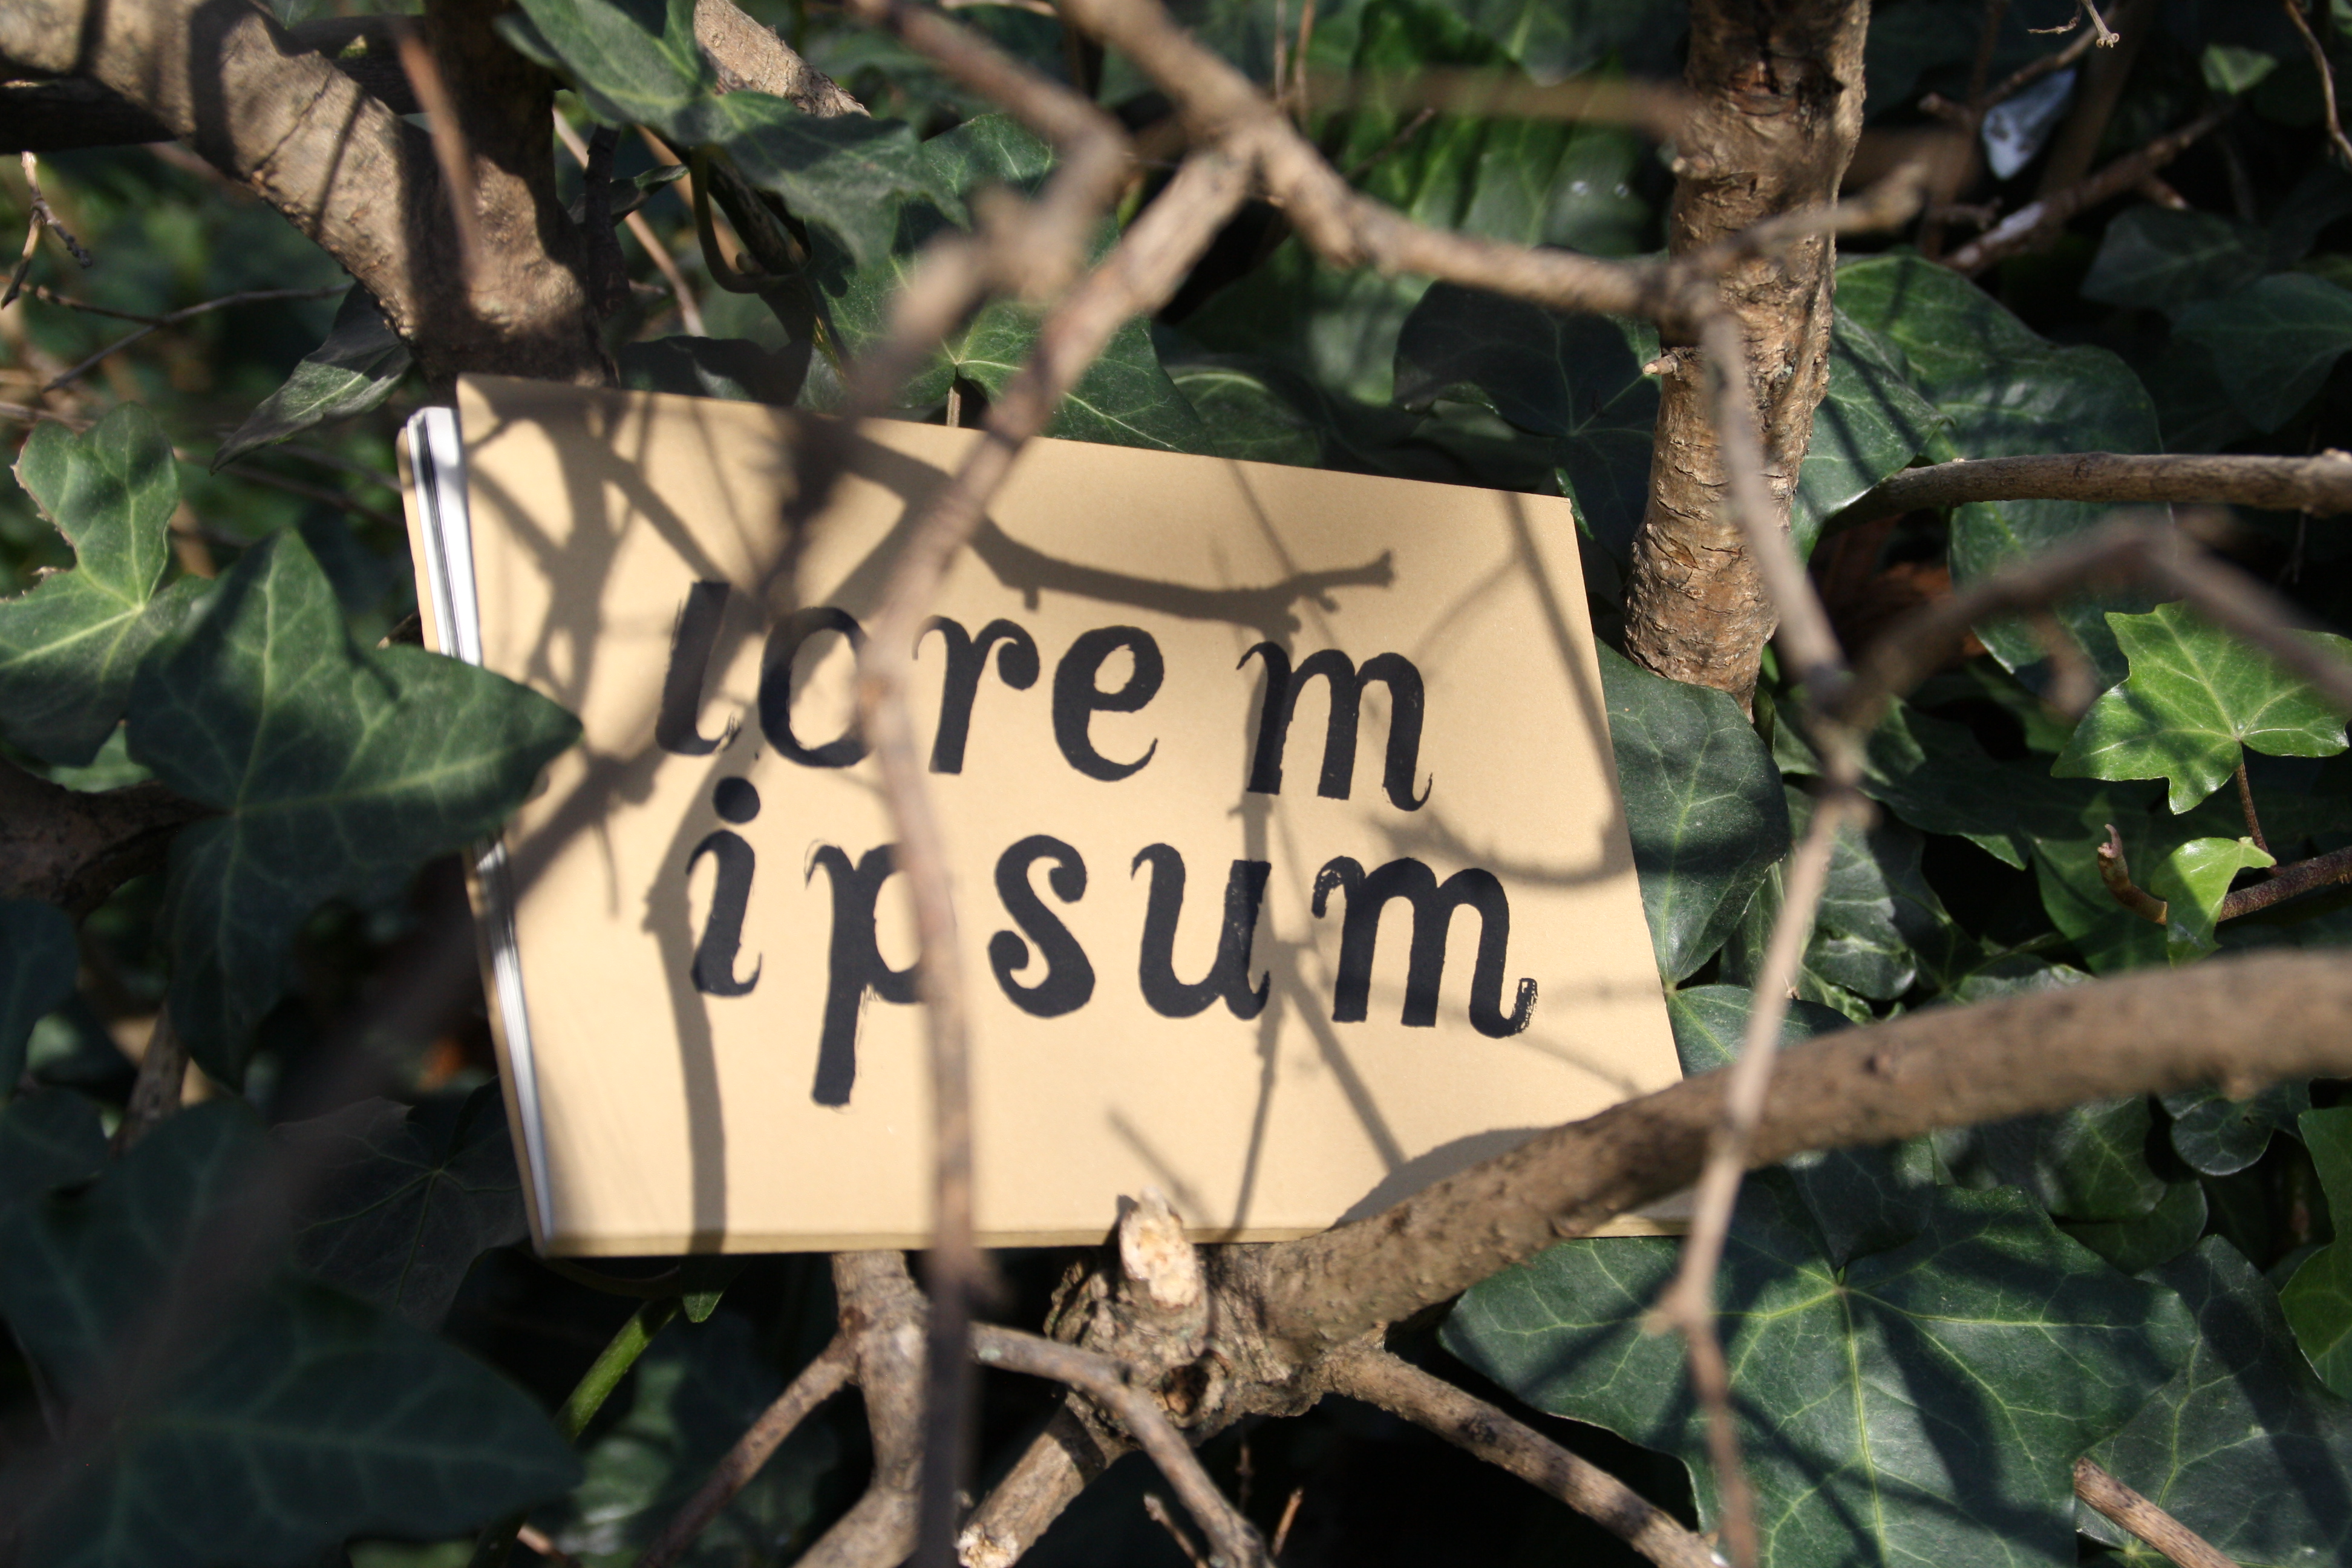 lorem
ipsum